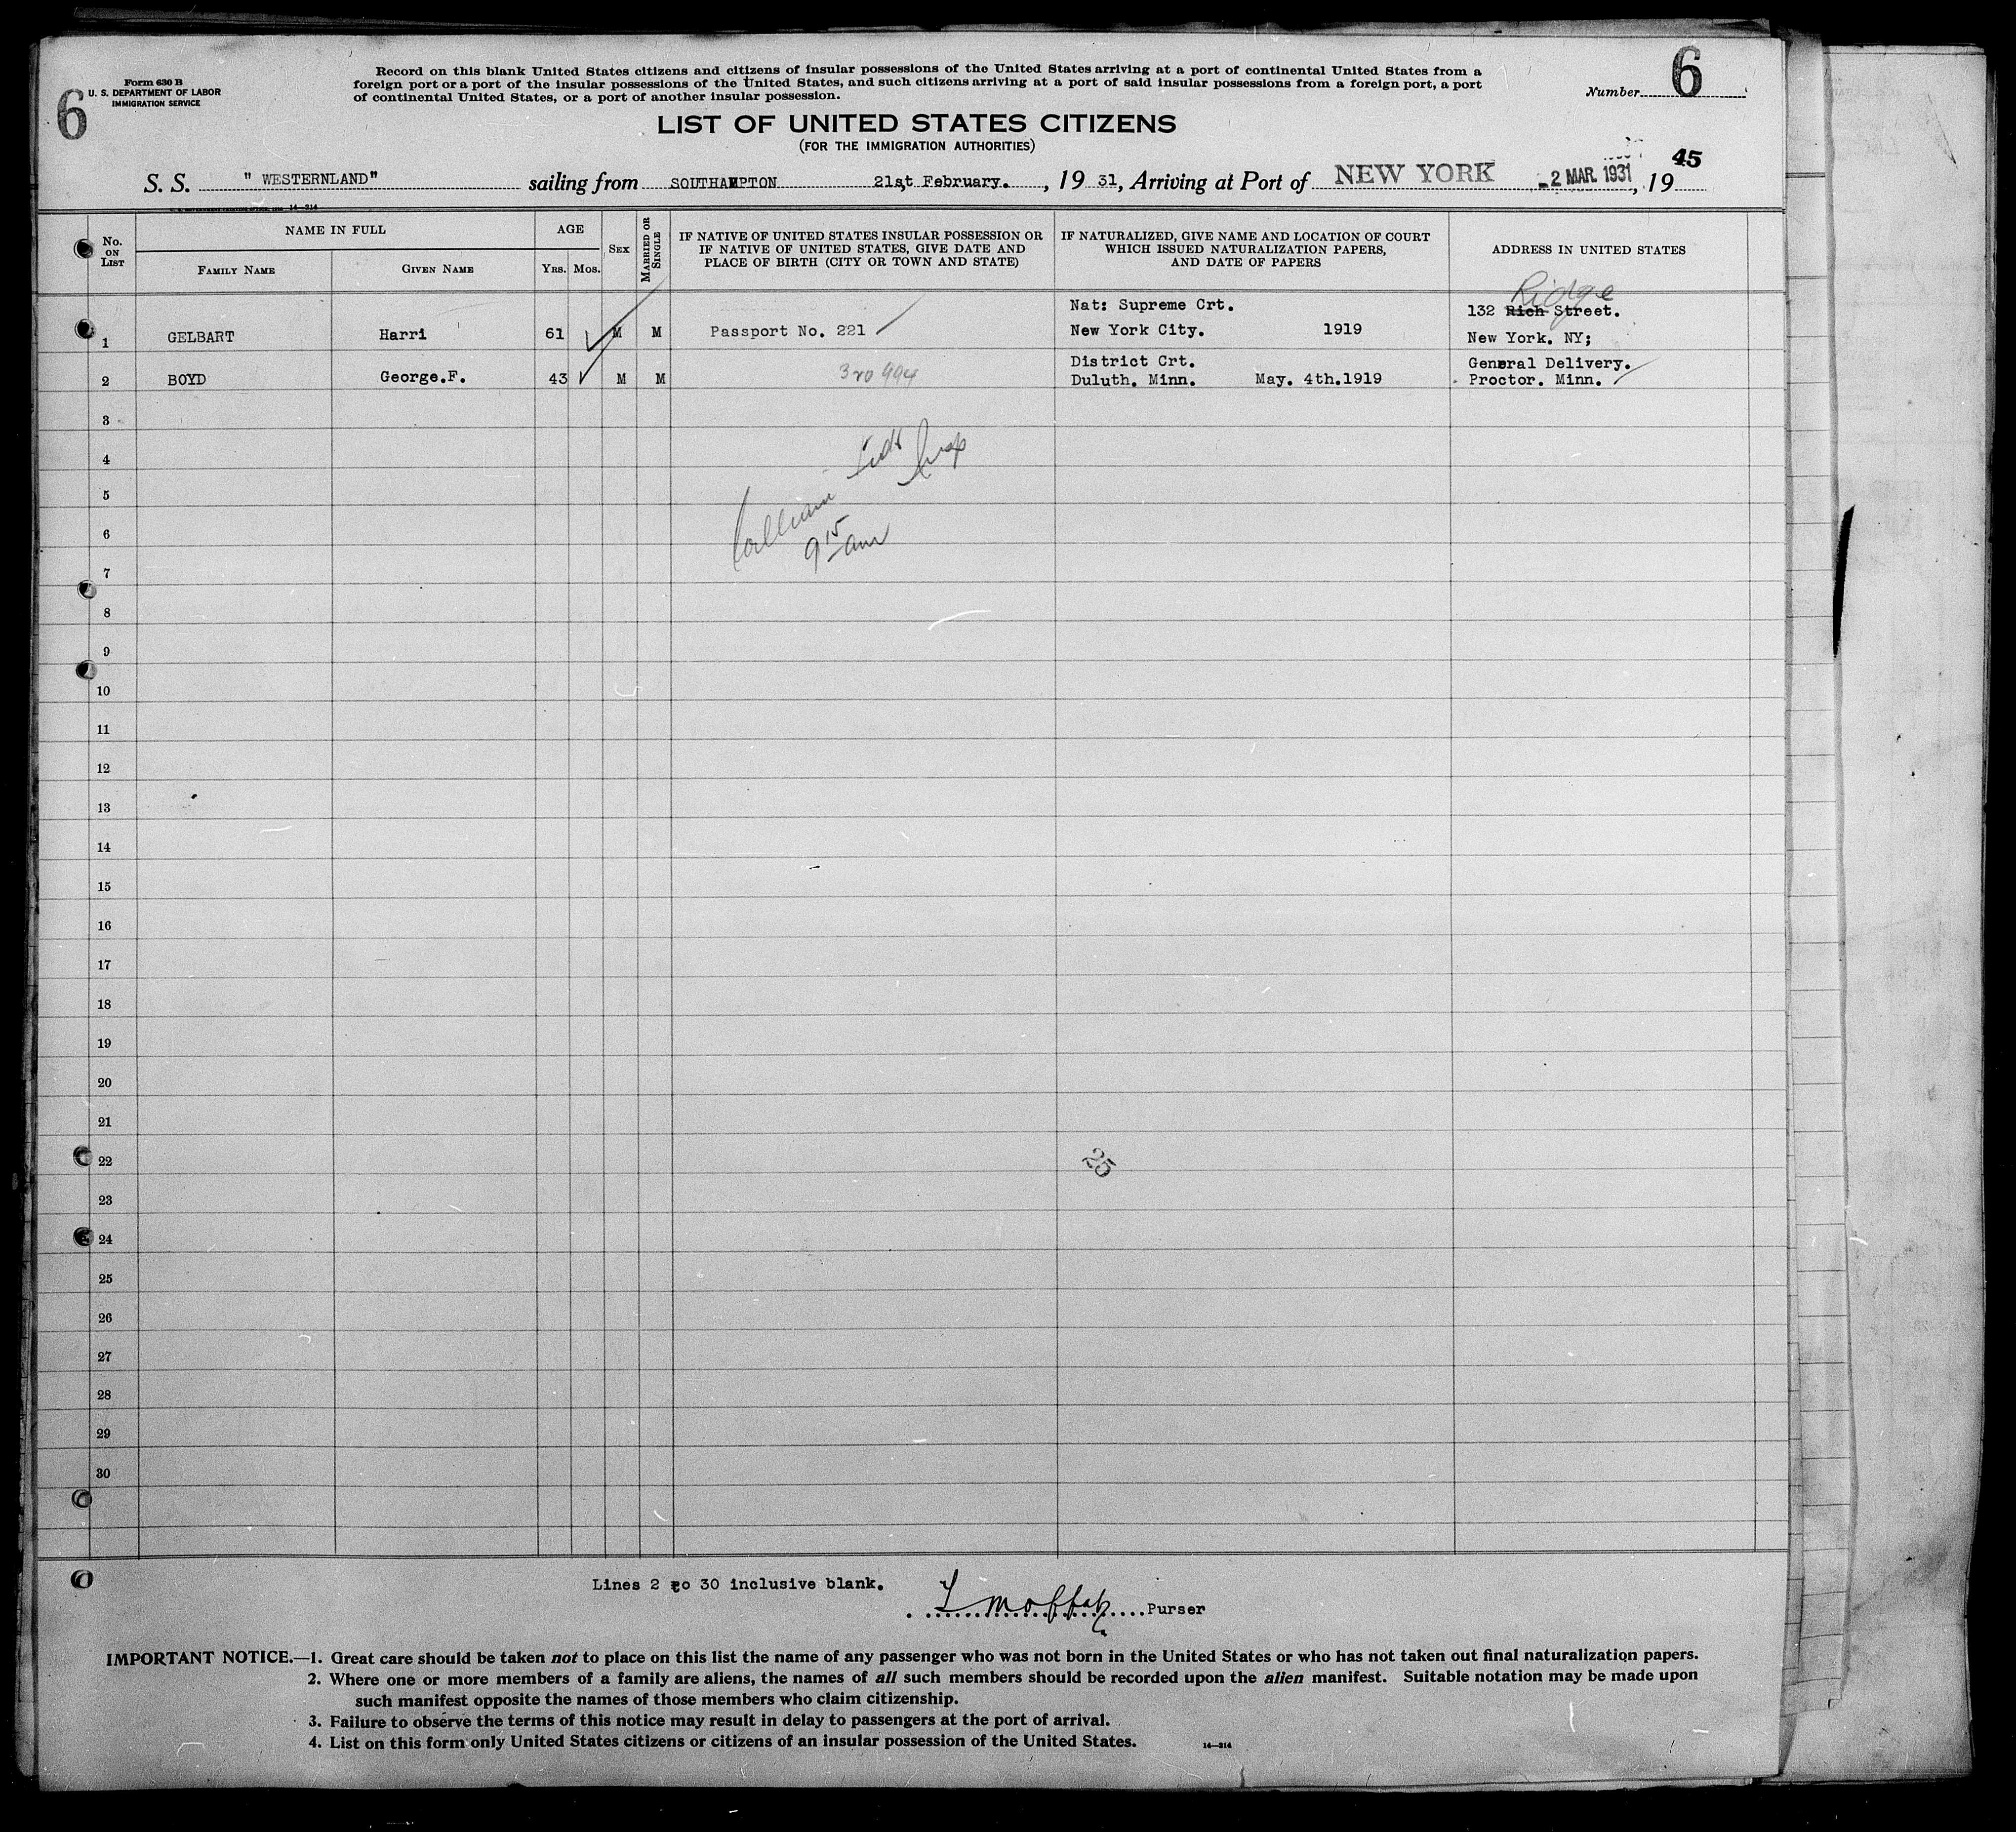 Form 630 B
U. S. DEPARTMENT OF LABOR
IMMIGRATION SERVICE
6
Record on this blank United States citizens and citizens of insular possessions of the United States arriving at a port of continental United States from a
foreign port or a port of the insular possessions of the United States, and such citizens arriving at a port of said insular possessions from a foreign port, a port
of continental United States, or a port of another insular possession.
Number 6
LIST OF UNITED STATES CITIZENS
(FOR THE IMMIGRATION AUTHORITIES)
45
S. S. " WESTERNLAND" sailing from SOUTHAMPTON 21st February. , 19 31, Arriving at Port of NEW YORK - 2 MAR. 1931, 19
14—314
No. ON LIST
NAME IN FULL
FAMILY NAME GIVEN NAME
AGE
YRS. MOS.
SEX
MARRIED OR SINGLE
IF NATIVE OF UNITED STATES INSULAR POSSESSION OR
IF NATIVE OF UNITED STATES, GIVE DATE AND
PLACE OF BIRTH (CITY OR TOWN AND STATE)
IF NATURALIZED, GIVE NAME AND LOCATION OF COURT
WHICH ISSUED NATURALIZATION PAPERS,
AND DATE OF PAPERS
ADDRESS IN UNITED STATES
Ridge
Nat: Supreme Crt. 132 Rich Street.
1 GELBART Harri 61 M M Passport No. 221 New York City. 1919 New York. NY;
District Crt. General Delivery.
2 BOYD George.F. 43 M M 320994 Duluth. Minn. May. 4th.1919 Proctor. Minn.
3
4
5
6
9 15 am
7
8
9
10
11
12
13
14
15
16
17
18
19
20
21
22
25
23
24
25
26
27
28
29
30
Lines 2 to 30 inclusive blank.
Moffat Purser
IMPORTANT NOTICE.—1. Great care should be taken not to place on this list the name of any passenger who was not born in the United States or who has not taken out final naturalization papers.
2. Where one or more members of a family are aliens, the names of all such members should be recorded upon the alien manifest. Suitable notation may be made upon
such manifest opposite the names of those members who claim citizenship.
3. Failure to observe the terms of this notice may result in delay to passengers at the port of arrival.
4. List on this form only United States citizens or citizens of an insular possession of the United States.
14—314